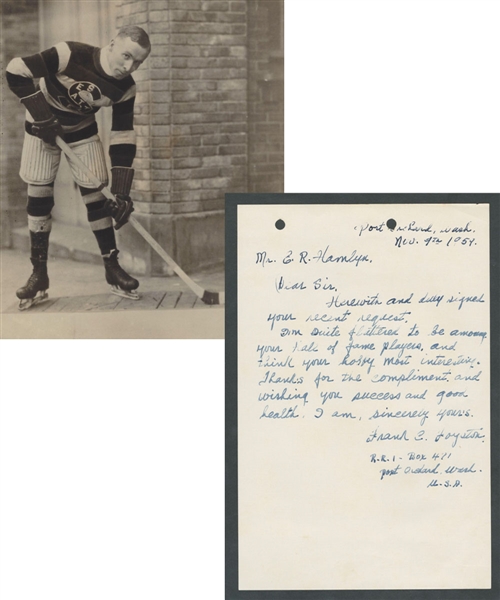 Port Orchard, Wash.
Nov. 9th 1954.
Mr. E. R. Hamlyn.
Dear Sir.
Herewith and duly signed
your recent request.
I'm quite flattered to be among
your hall of fame players, and
think your hobby most interesting.
Thanks for the compliment, and
wishing you success and good
health. I am, sincerely yours.
Frank C. Foyston.
R.R.1 - Box 411
Port Orchard, Wash.
U.S.A.